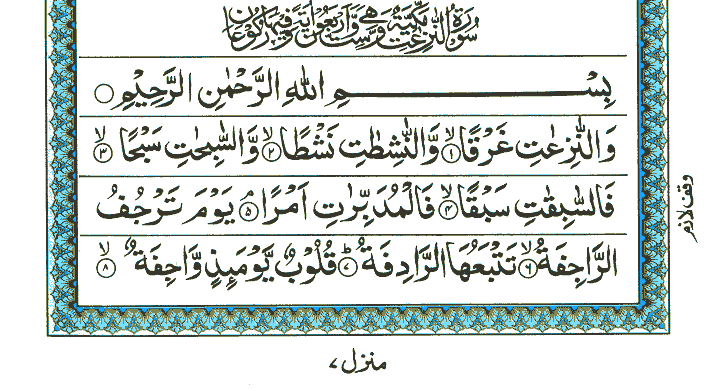 سُوْرَةُ النّٰزِعٰتِ مَكِّيَّةٌ وَّهِيَ سِتٌّ وَّاَرْبَعُوْنَ اٰيَةً وَّفِيْهَا رُكُوْعَانِ
بِسْمِ اللهِ الرَّحْمٰنِ الرَّحِيْمِ ○
وَالنّٰزِعٰتِ غَرْقًا ۙ﴿۱﴾ وَّالنّٰشِطٰتِ نَشْطًا ۙ﴿۲﴾ وَّالسّٰبِحٰتِ سَبْحًا ۙ﴿۳﴾
فَالسّٰبِقٰتِ سَبْقًا ۙ﴿۴﴾ فَالْمُدَبِّرٰتِ اَمْرًا ۘ﴿۵﴾ يَوْمَ تَرْجُفُ
الرَّاجِفَةُ ۙ﴿۶﴾ تَتْبَعُهَا الرَّادِفَةُ ؕ﴿۷﴾ قُلُوْبٌ يَّوْمَىِٕذٍ وَّاجِفَةٌ ۙ﴿۸﴾
وقف لازم
منزل ۷